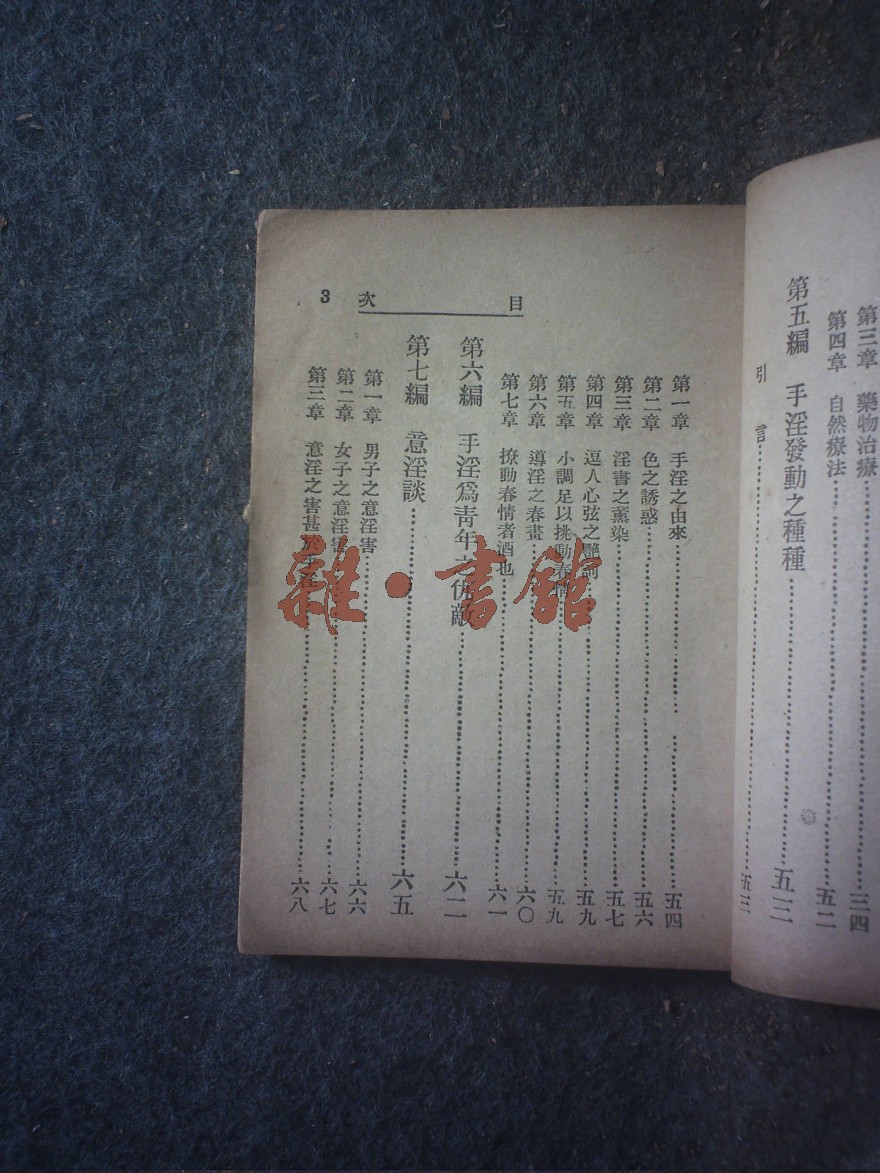 第三章 藥物治療……三四
第四章 自然療法……五二
第五編 手淫發動之種種……五三
引言……五三
目次 3
第一章 手淫之由來……五四
第二章 色之誘惑……五六
第三章 淫書之薰染……五七
第四章 逗人心弦之艷詞……五九
第五章 小調足以挑動春情……五九
第六章 導淫之春畫……六〇
第七章 撩動春情者酒也……六一
第六編 手淫爲青年之仇敵……六二
第七編 意淫談……六五
第一章 男子之意淫害……六六
第二章 女子之意淫害……六七
第三章 意淫之害甚於手淫……六八
雜·書館